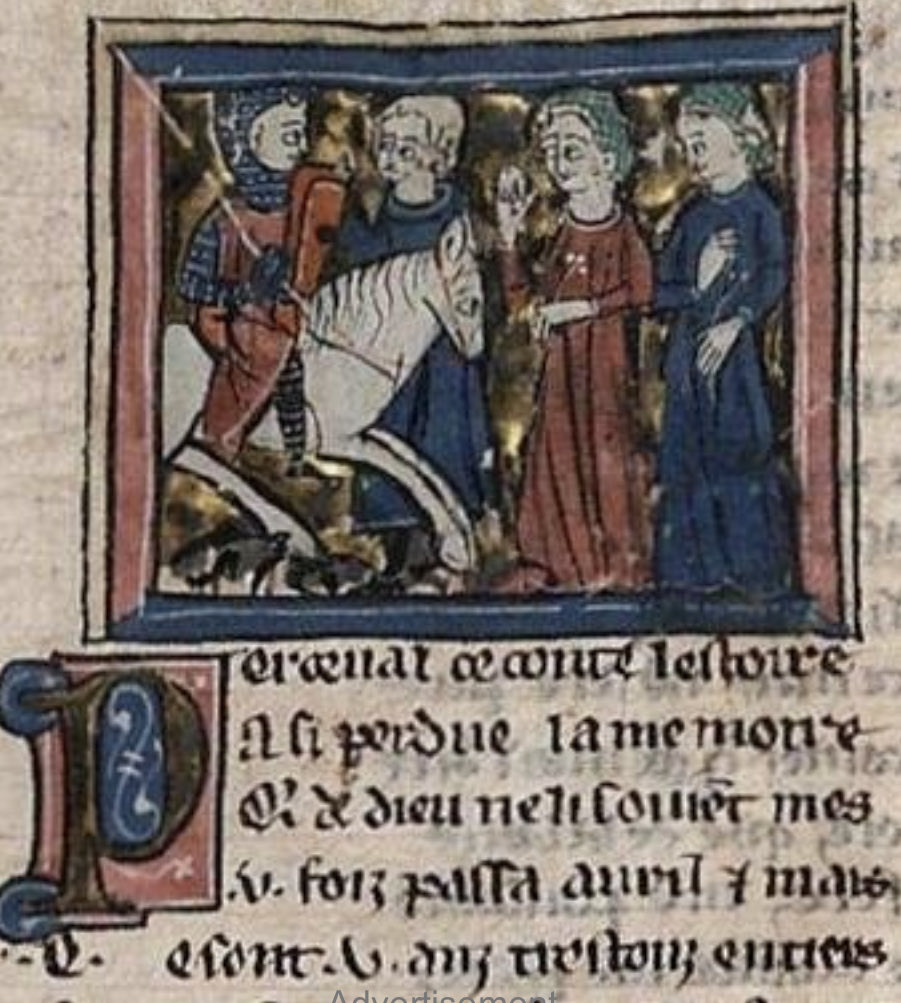 Perceual ce conte lestoire
A si perdue la memoire
Q' de dieu ne li souiēt mes
.v. foiz passa auril ⁊ mais
C esont .v. anz trestoiz entiers
Advertisement